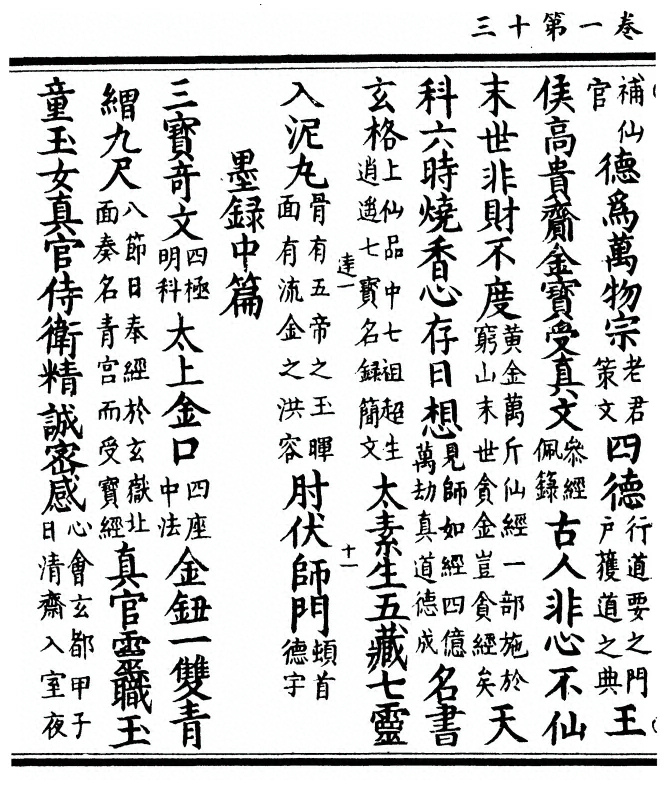 卷一第十三
補仙官德爲萬物宗老君策文四德行道要之門戶獲道之典王
侯高貴齋金寶受真文參經佩籙古人非心不仙
末世非財不度黃金萬斤仙經一部施於窮山末世貪金豈貪經矣天
科六時燒香心存日想見師如經四億萬劫真道德成名書
玄格上仙品中七祖超生逍遙七寶名録簡文太素生五藏七靈
達一 十一
入泥丸骨有五帝之玉暉面有流金之洪容肘伏師門頓首德宇
墨録中篇
三寶奇文四極明科太上金口四座中法金鈕一雙青
繒九尺八節日奉經於玄嶽北面奏名青宮而受寶經真官靈職玉
童玉女真官侍衛精誠密感心會玄都甲子日清齋入室夜